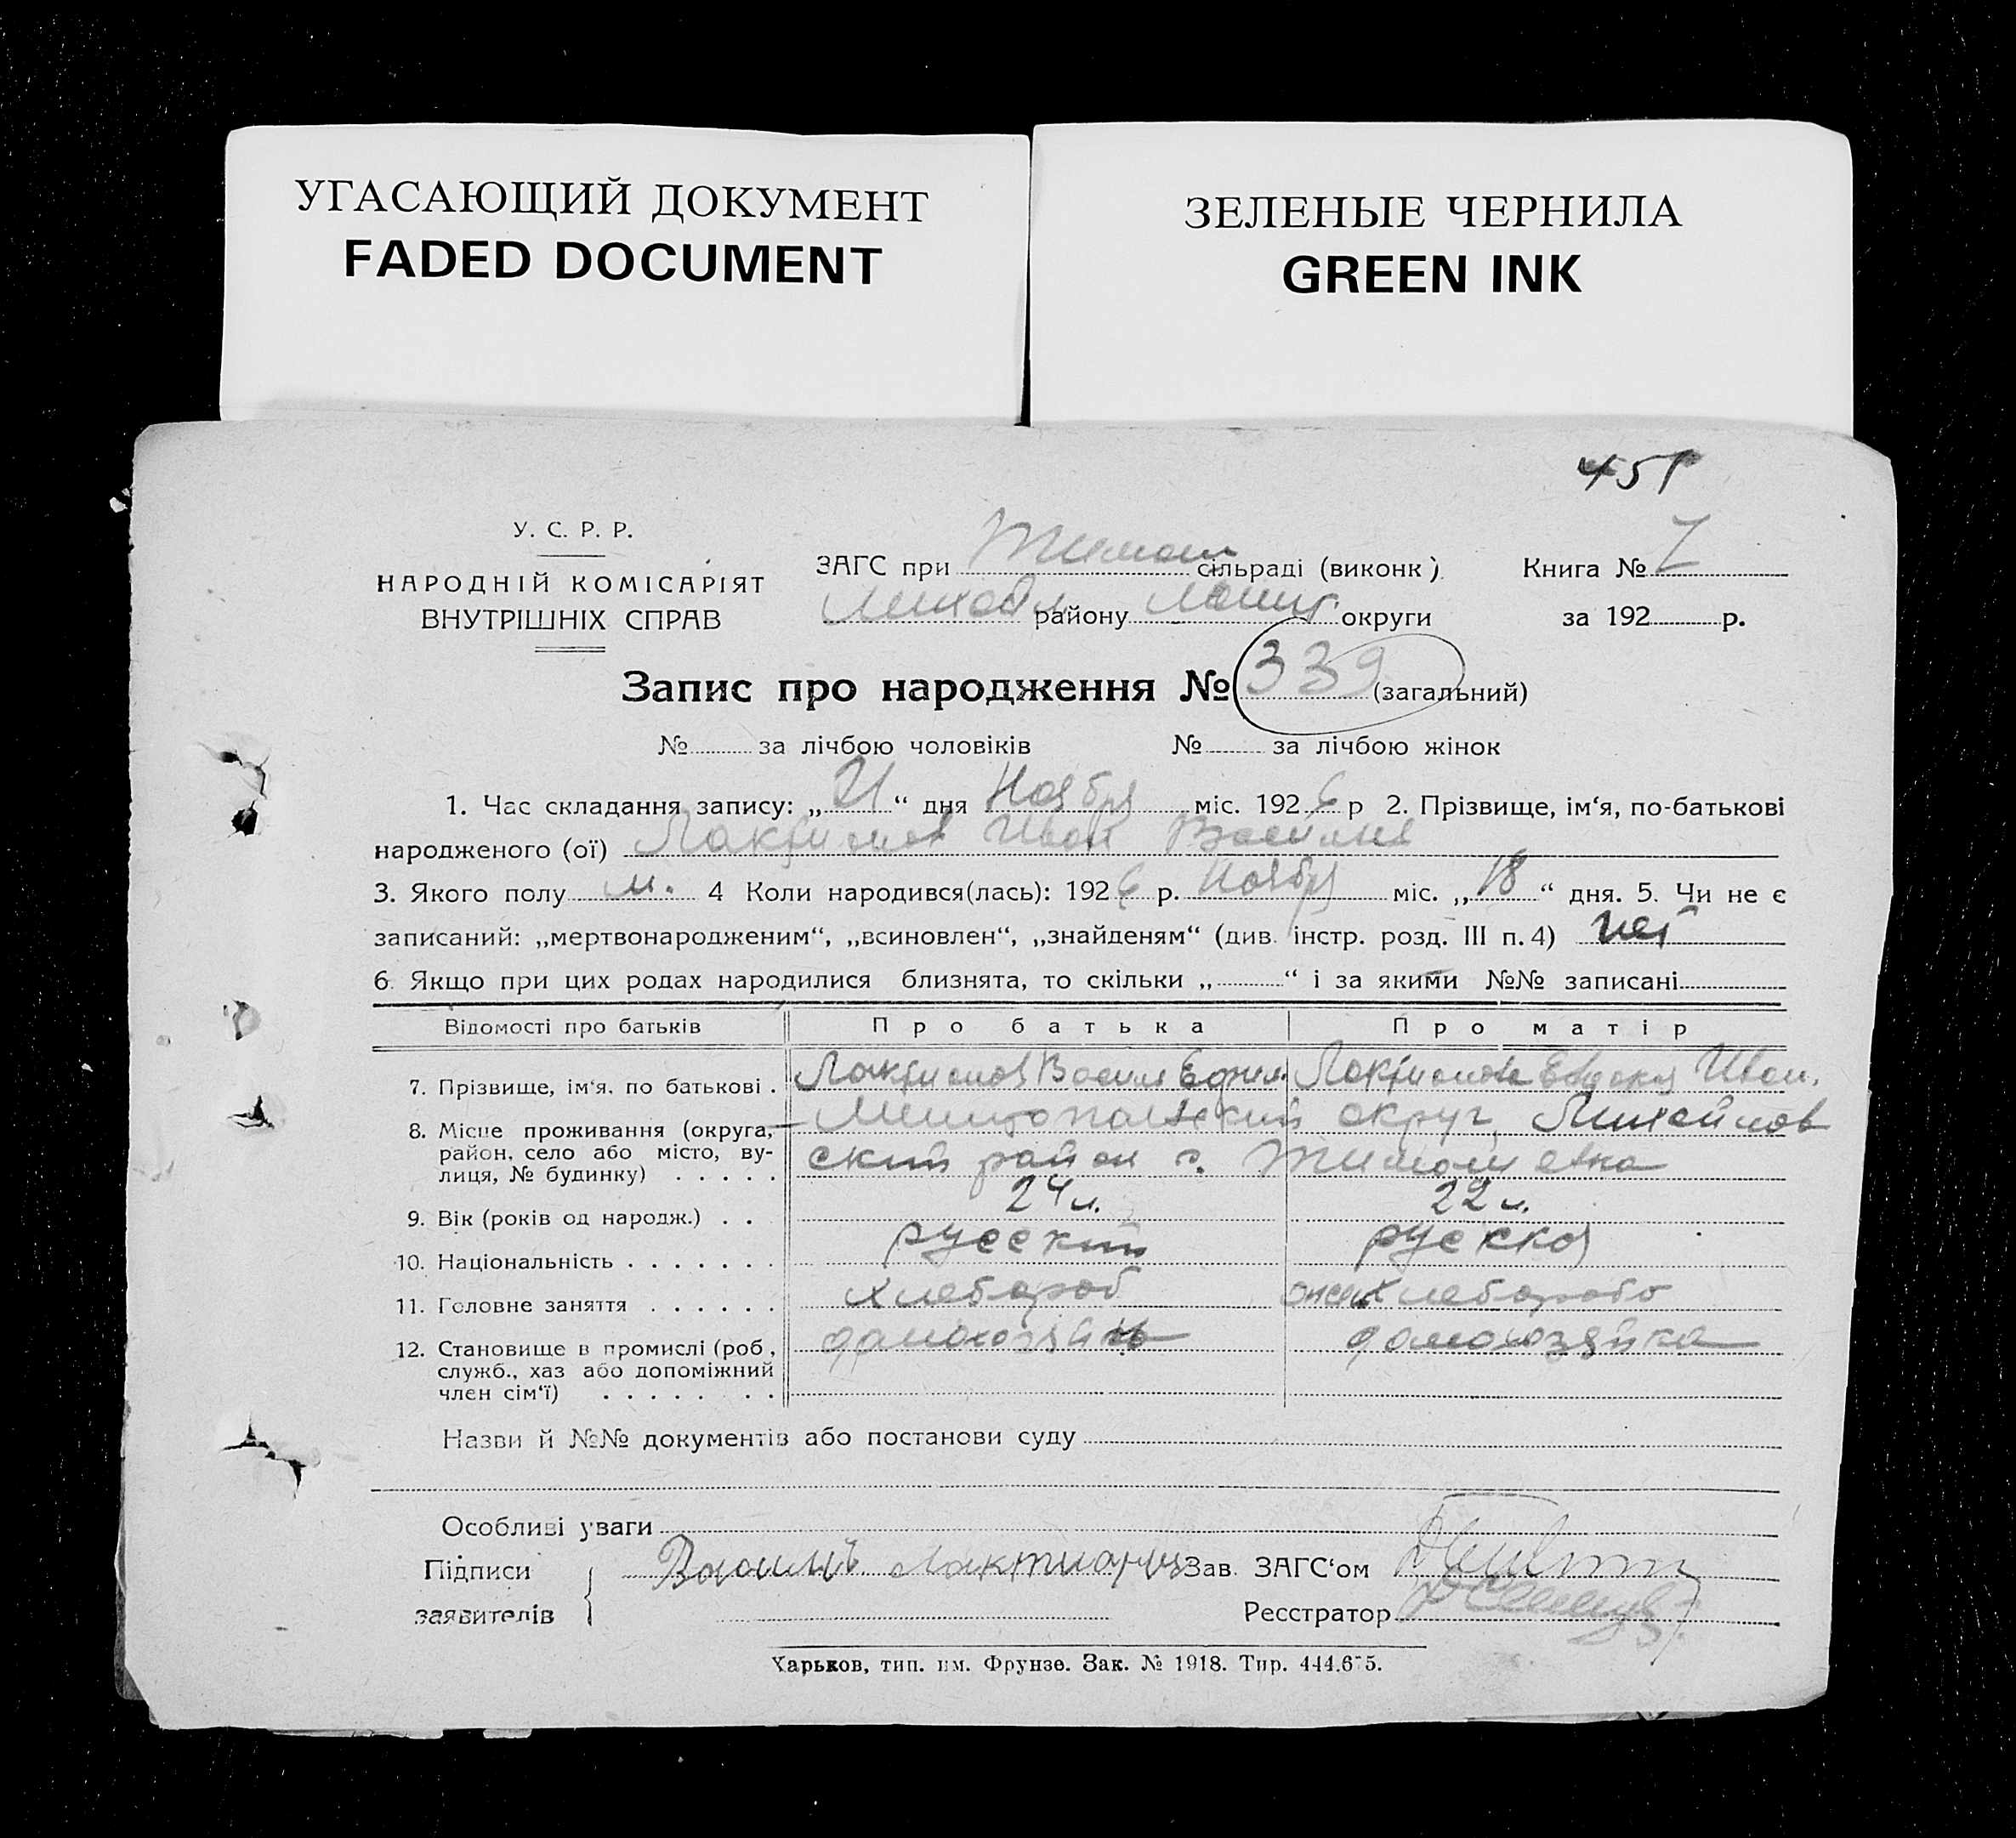 УГАСАЮЩИЙ ДОКУМЕНТ
FADED DOCUMENT
ЗЕЛЕНЫЕ ЧЕРНИЛА
GREEN INK
У. С. Р. Р.
НАРОДНІЙ КОМІСАРІЯТ
ВНУТРІШНІХ СПРАВ
ЗАГС при Тимош сільраді (виконк)
району округи
Книга №
за 192 р.
Запис про народження № 339 (загальний)
№ за лічбою чоловіків № за лічбою жінок
1. Час складання запису: „21“ дня Ноября міс. 1926 р 2. Прізвище, ім‘я, по-батькові
народженого (ої) Лактионов Иван
3. Якого полу м. 4 Коли народився(лась): 1926 р. Ноября міс. „18“ дня. 5. Чи не є
записаний: „мертвонародженим“, „всиновлен“, „знайденям“ (див. інстр. розд. III п. 4) нет
6. Якщо при цих родах народилися близнята, то скільки „ “ і за якими №№ записані
Відомості про батьків Про батька Про матір
7. Прізвище, ім‘я, по батькові . Лактионов Васил Лактионова Иван.
8. Місце проживання (округа, район, село або місто, вулиця, № будинку) . . . . . Мелитопольский округ, Михайлов
ский район с. Тимошевка
9. Вік (років од народж.) . . 24 л. 22 л.
10. Національність . . . . . . . русский русская
11. Головне заняття . . . . . . хлебороб хлебороба
12. Становище в промислі (роб, служб., хаз або допоміжний член сім‘ї) . . . . . . . домохозяин домохозяйка
Назви й №№ документів або постанови суду
Особливі уваги
Підписи
заявителів
Зав. ЗАГС‘ом
Ресстратор
Харьков, тип. им. Фрунзе. Зак. № 1918. Тир.